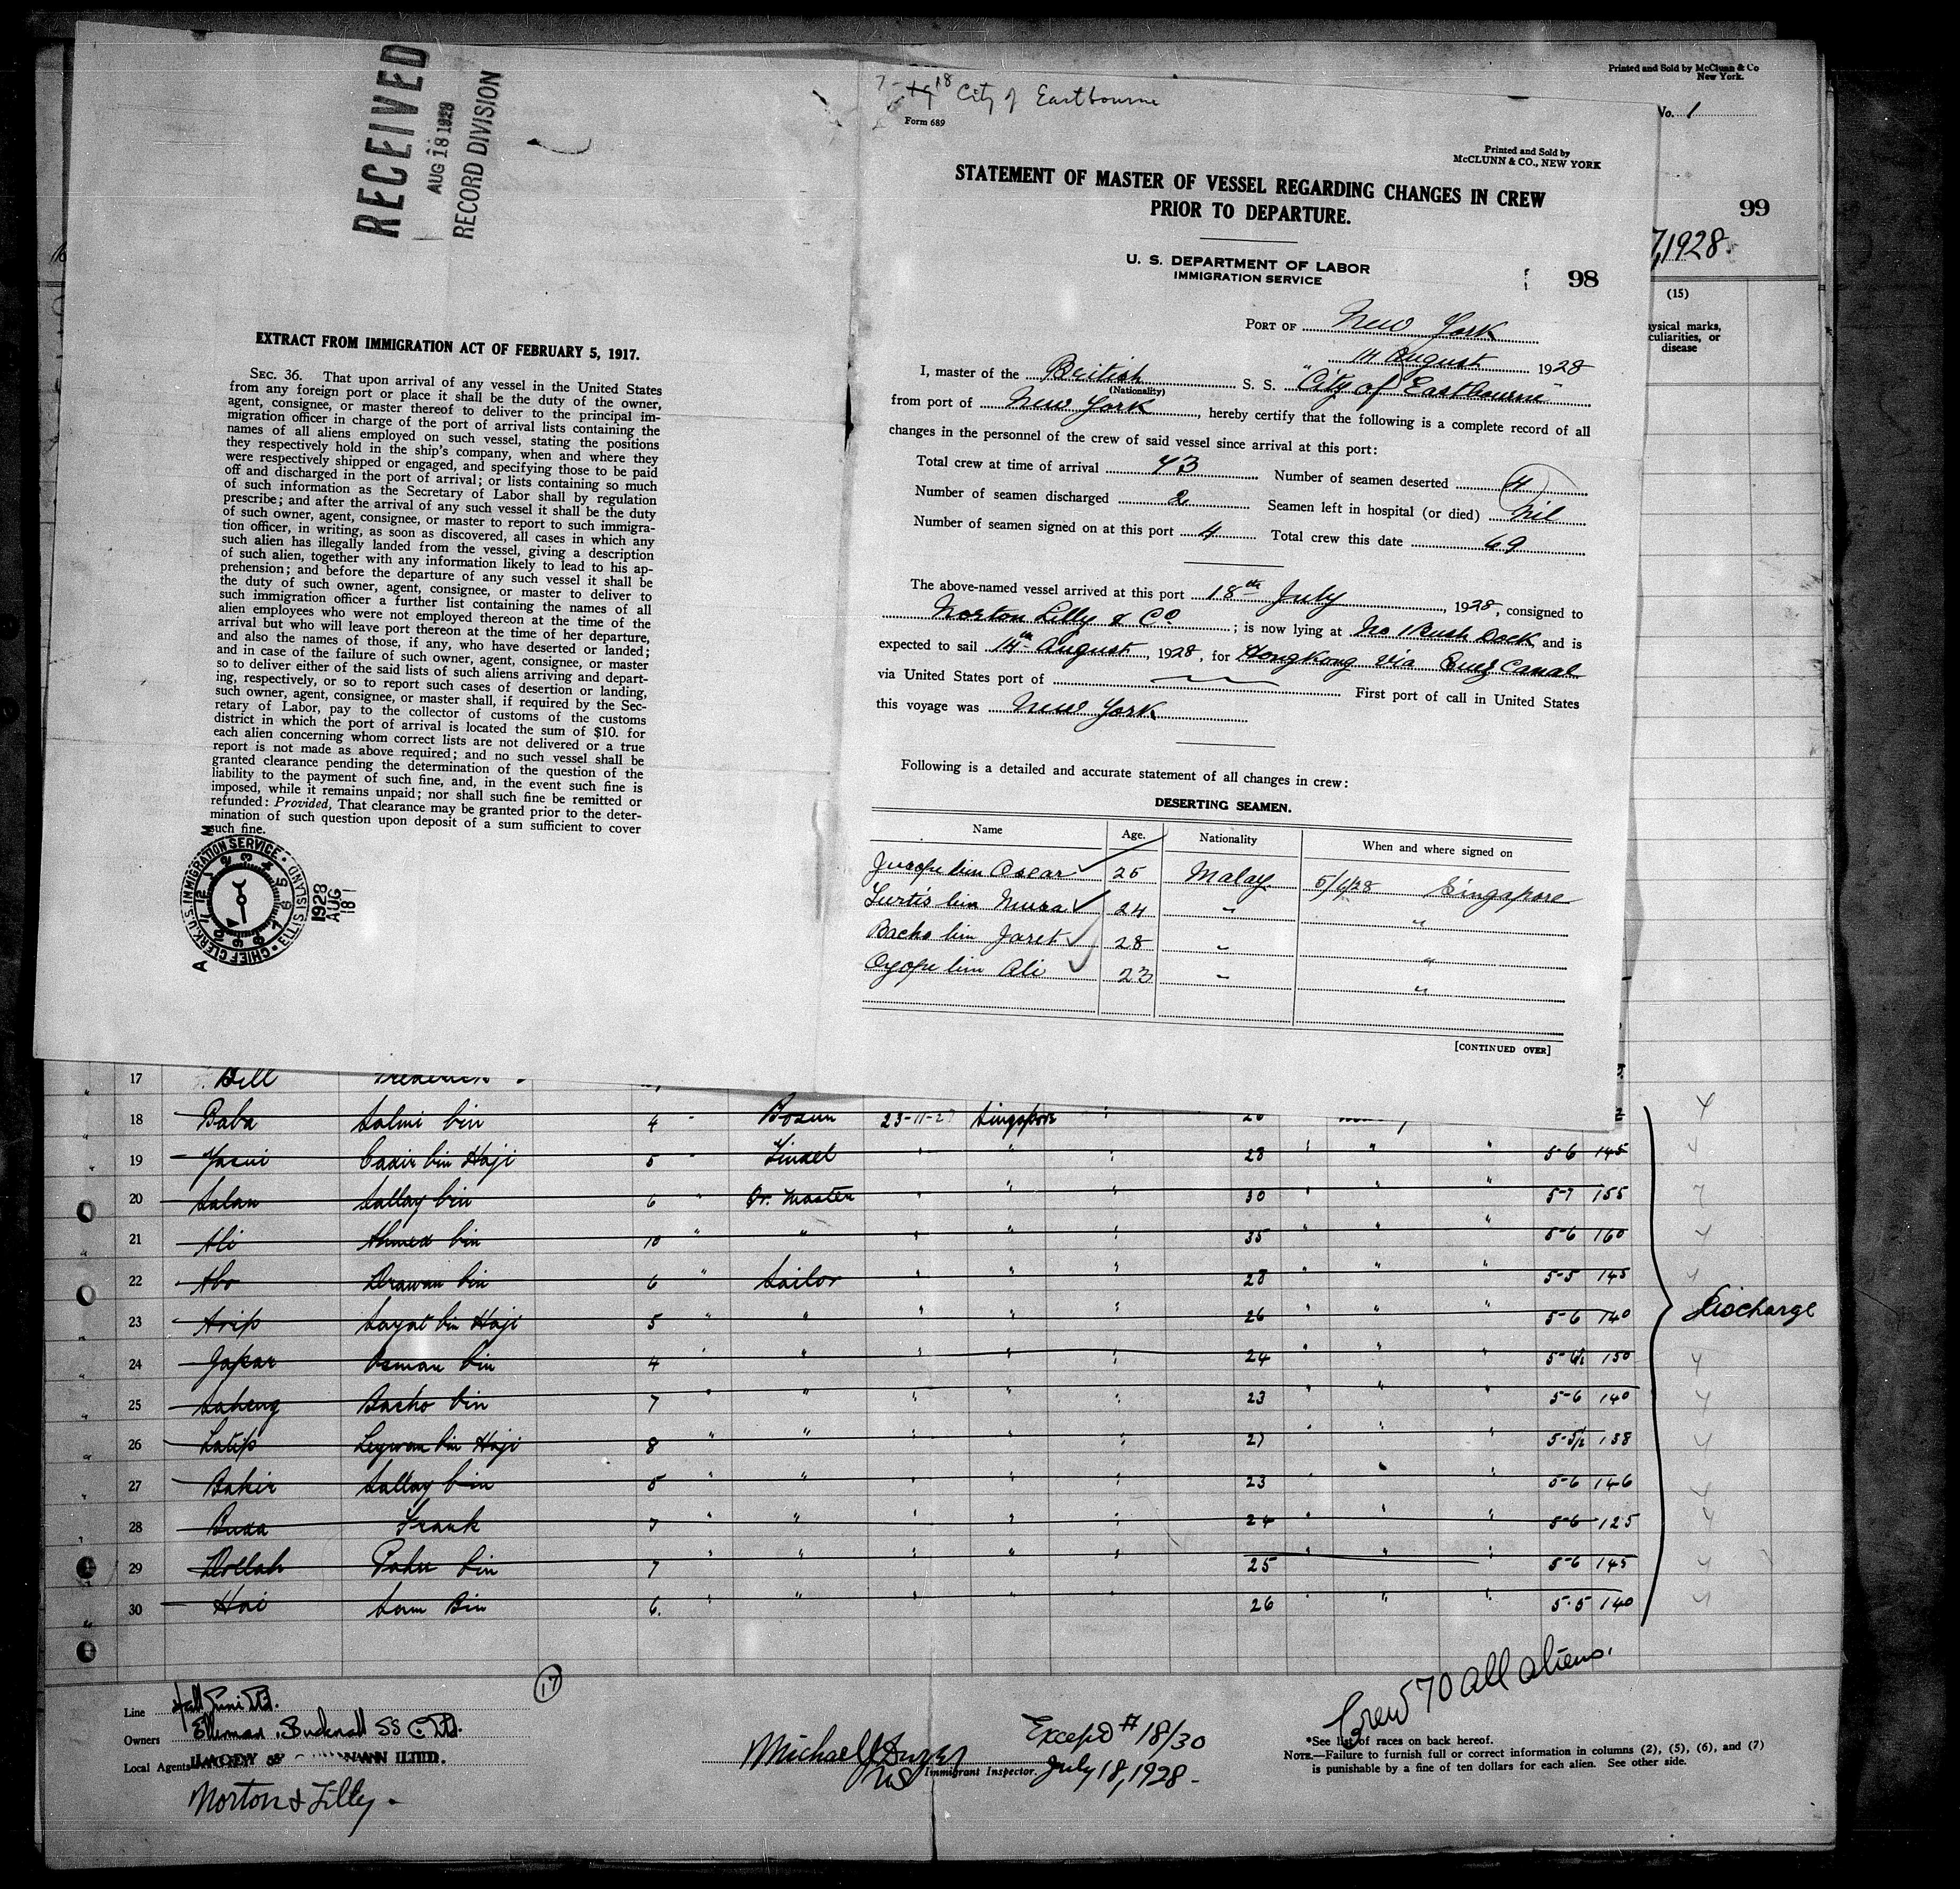 RECEIVED
AUG 18 1928
RECORD DIVISION
EXTRACT FROM IMMIGRATION ACT OF FEBRUARY 5, 1917.
SEC. 36. That upon arrival of any vessel in the United States
from any foreign port or place it shall be the duty of the owner,
agent, consignee, or master thereof to deliver to the principal im-
migration officer in charge of the port of arrival lists containing the
names of all aliens employed on such vessel, stating the positions
they respectively hold in the ship's company, when and where they
were respectively shipped or engaged, and specifying those to be paid
off and discharged in the port of arrival; or lists containing so much
of such information as the Secretary of Labor shall by regulation
prescribe; and after the arrival of any such vessel it shall be the duty
of such owner, agent, consignee, or master to report to such immigra-
tion officer, in writing, as soon as discovered, all cases in which any
such alien has illegally landed from the vessel, giving a description
of such alien, together with any information likely to lead to his ap-
prehension; and before the departure of any such vessel it shall be
the duty of such owner, agent, consignee, or master to deliver to
such immigration officer a further list containing the names of all
alien employees who were not employed thereon at the time of the
arrival but who will leave port thereon at the time of her departure,
and also the names of those, if any, who have deserted or landed;
and in case of the failure of such owner, agent, consignee, or master
so to deliver either of the said lists of such aliens arriving and depart-
ing, respectively, or so to report such cases of desertion or landing,
such owner, agent, consignee, or master shall, if required by the Sec-
retary of Labor, pay to the collector of customs of the customs
district in which the port of arrival is located the sum of $10. for
each alien concerning whom correct lists are not delivered or a true
report is not made as above required; and no such vessel shall be
granted clearance pending the determination of the question of the
liability to the payment of such fine, and, in the event such fine is
imposed, while it remains unpaid; nor shall such fine be remitted or
refunded: Provided, That clearance may be granted prior to the deter-
mination of such question upon deposit of a sum sufficient to cover
such fine.
CHIEF CLERK U.S. IMMIGRATION SERVICE ELLIS ISLAND
1928
AUG
18
City of Eastbourne
Form 689
Printed and Sold by
McCLUNN & CO., NEW YORK
STATEMENT OF MASTER OF VESSEL REGARDING CHANGES IN CREW
PRIOR TO DEPARTURE.
U. S. DEPARTMENT OF LABOR
IMMIGRATION SERVICE
98
PORT OF New York
14 August 1928
I, master of the British S. S. "City of Eastbourne"
(Nationality)
from port of New York, hereby certify that the following is a complete record of all
changes in the personnel of the crew of said vessel since arrival at this port:
Total crew at time of arrival 73 Number of seamen deserted 4
Number of seamen discharged 2 Seamen left in hospital (or died) Nil
Number of seamen signed on at this port 4 Total crew this date 69
The above-named vessel arrived at this port 18th July, 1928, consigned to
Norton Lilly & Co; is now lying at No 1 Bush Dock, and is
expected to sail 14th August, 1928, for HongKong via Suez Canal
via United States port of First port of call in United States
this voyage was New York
Following is a detailed and accurate statement of all changes in crew:
DESERTING SEAMEN.
Name Age. Nationality When and where signed on
bin Oscar 25 Malay 5/6/28 Singapore
bin Musa 24 " "
Bacho bin Jaret 28 " "
bin Ali 23 " "
[CONTINUED OVER]
Printed and Sold by McClunn & Co
New York.
No. 1
99
7, 1928.
(15)
ysical marks,
culiarities, or
disease
17 Bell Frederick
18 Baba Salmi bin 4 " Bosun 23-11-27 Singapore
19 Cadir bin Haji 5 " Tindel " " " 28 " " " 5-6 145
20 Salan Sallay bin 6 " Qr. Master " " " 30 " " " 5-7 155
21 Ali Ahmed bin 10 " " " " " 35 " " " 5-6 160
22 Abo Drawan bin 6 " Sailor " " " 28 " " " 5-5 145
23 Arip Sayat bin Haji 5 " " " " " 26 " " " 5-6 140
Discharge
24 Japar Osman bin 4 " " " " " 24 " " " 150
25 Saheng Bacho bin 7 " " " " " 23 " " " 5-6 140
26 Latip Leywan bin Haji 8 " " " " " 27 " " " 5-5½ 138
27 Bakir Sallay bin 5 " " " " " 23 " " " 5-6 146
28 Frank 7 " " " " " 24 " " " 5-6 125
29 Dollah bin 7 " " " " " 25 " " " 5-6 145
30 Hai Sam Bin 6. " " " " " 26 " " " 5-5 140
17
Crew 70 all aliens.
Line Hall Line Ltd.
Owners Ellerman Bucknall SS Co Ltd.
Local Agents
Norton & Lilly
Michael
Immigrant Inspector.
Except # 18/30
July 18, 1928
*See list of races on back hereof.
NOTE.—Failure to furnish full or correct information in columns (2), (5), (6), and (7)
is punishable by a fine of ten dollars for each alien. See other side.